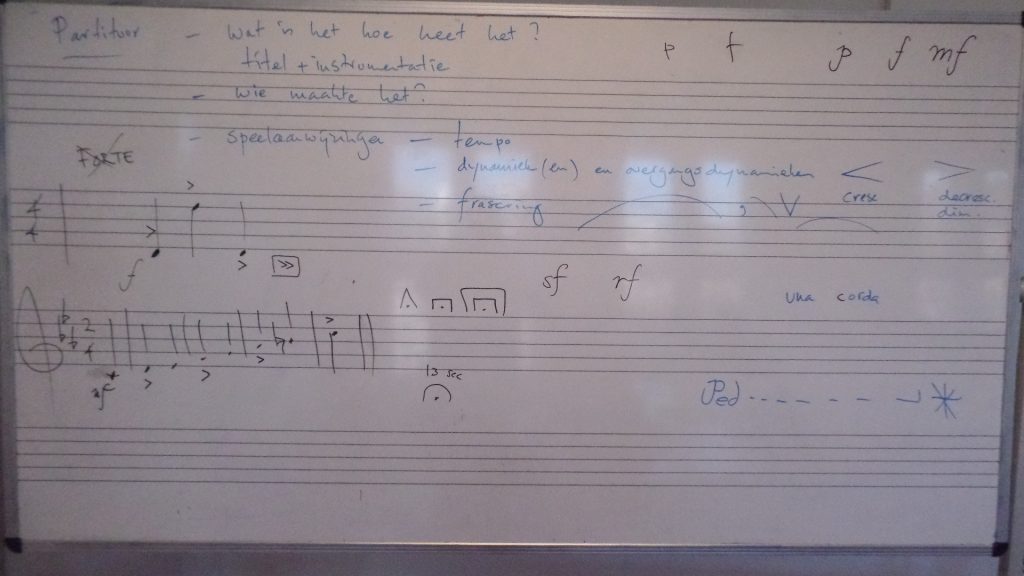 Partituur - wat is het hoe heet het?
titel + instrumentatie
- wie maakte het?
p f p f mf
- speelaanwijzingen - tempo
FORTE
- dynamiek(en) en overgangsdynamieken < >
cresc decresc.
dim.
- frasering
4
4
f
sf rf
una corda
2
4
mf
13 sec
Ped